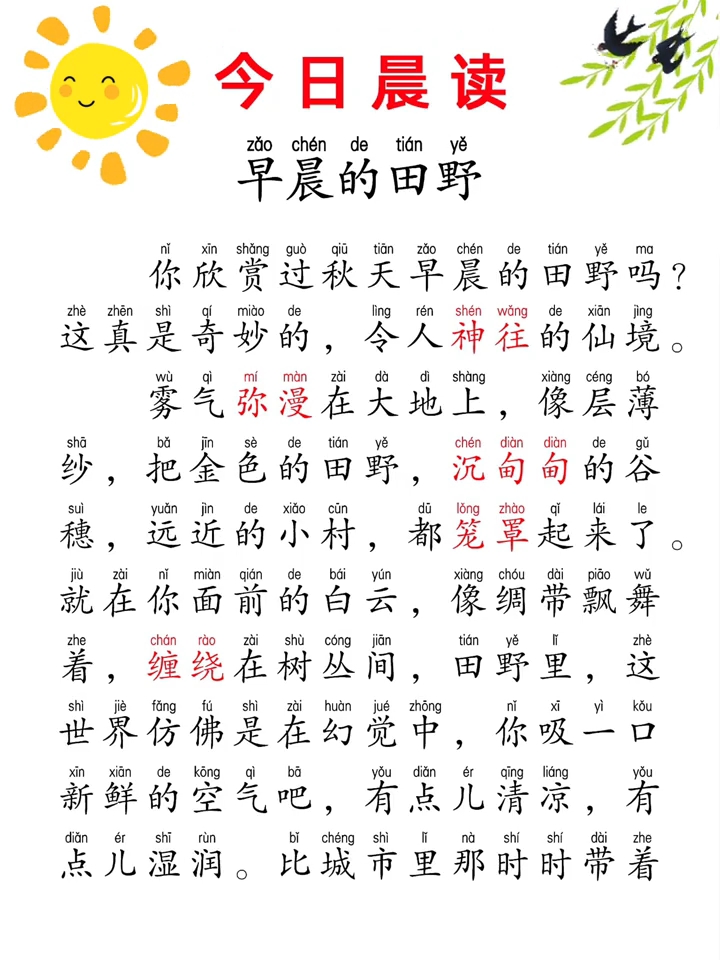 今日晨读
zǎo chén de tián yě
早晨的田野
nǐ xīn shǎng guò qiū tiān zǎo chén de tián yě ma
你欣赏过秋天早晨的田野吗？
zhè zhēn shì qí miào de lìng rén shén wǎng de xiān jìng
这真是奇妙的，令人神往的仙境。
wù qì mí màn zài dà dì shàng xiàng céng bó
雾气弥漫在大地上，像层薄
shā bǎ jīn sè de tián yě chén diàn diàn de gǔ
纱，把金色的田野，沉甸甸的谷
suì yuǎn jìn de xiǎo cūn dū lǒng zhào qǐ lái le
穗，远近的小村，都笼罩起来了。
jiù zài nǐ miàn qián de bái yún xiàng chóu dài piāo wǔ
就在你面前的白云，像绸带飘舞
zhe chán rào zài shù cóng jiān tián yě lǐ zhè
着，缠绕在树丛间，田野里，这
shì jiè fǎng fú shì zài huàn jué zhōng nǐ xī yì kǒu
世界仿佛是在幻觉中，你吸一口
xīn xiān de kōng qì bā yǒu diǎn ér qīng liáng yǒu
新鲜的空气吧，有点儿清凉，有
diǎn ér shī rùn bǐ chéng shì lǐ nà shí shí dài zhe
点儿湿润。比城市里那时时带着